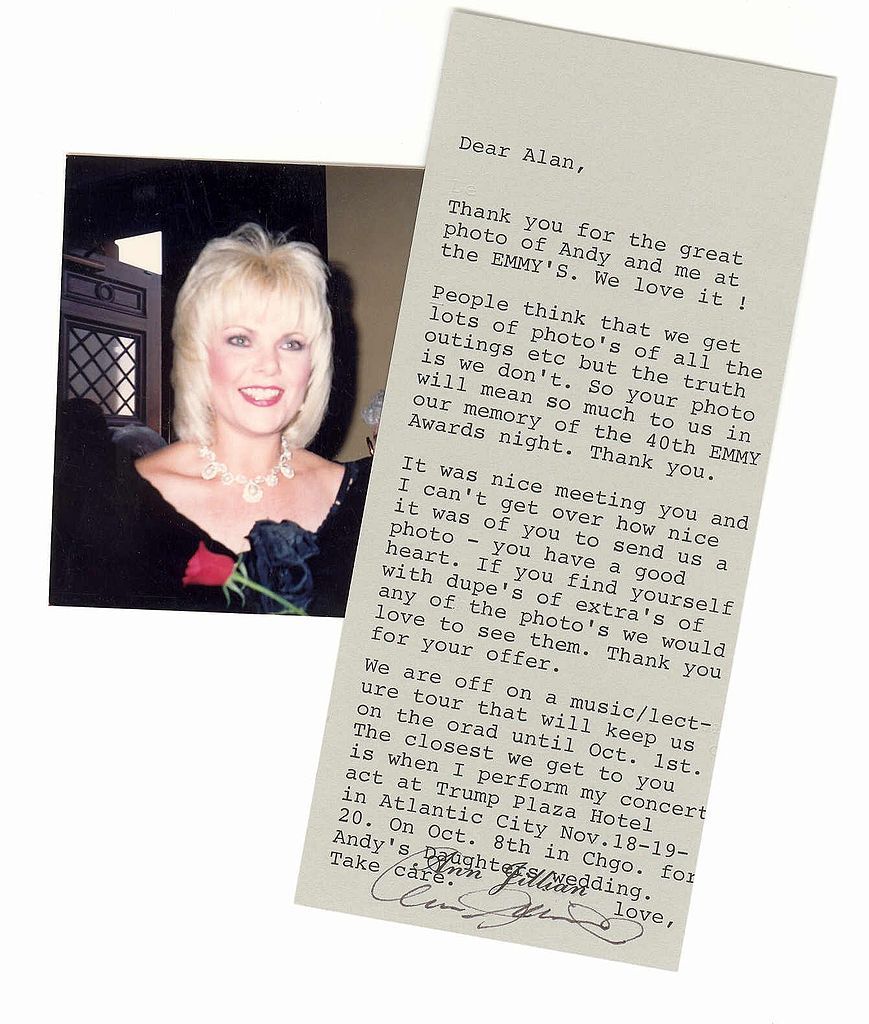 Dear Alan,
Thank you for the great
photo of Andy and me at
the EMMY'S. We love it !
People think that we get
lots of photo's of all the
outings etc but the truth
is we don't. So your photo
will mean so much to us in
our memory of the 40th EMMY
Awards night. Thank you.
It was nice meeting you and
I can't get over how nice
it was of you to send us a
photo - you have a good
heart. If you find yourself
with dupe's of extra's of
any of the photo's we would
love to see them. Thank you
for your offer.
We are off on a music/lect-
ure tour that will keep us
on the orad until Oct. 1st.
The closest we get to you
is when I perform my concert
act at Trump Plaza Hotel
in Atlantic City Nov.18-19-
20. On Oct. 8th in Chgo. for
Andy's Daughters wedding.
Take care.
Ann Jillian
love,
Ann Jillian